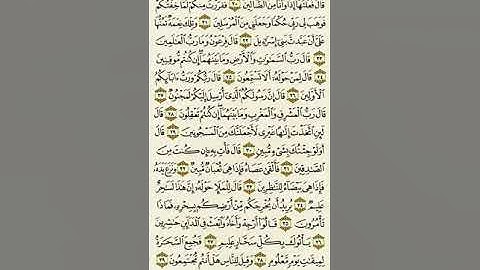 قَالَ فَعَلْتُهَآ إِذًا وَأَنَا۠ مِنَ ٱلضَّآلِّينَ ٢٠ فَفَرَرْتُ مِنكُمْ لَمَّا خِفْتُكُمْ
فَوَهَبَ لِى رَبِّى حُكْمًا وَجَعَلَنِى مِنَ ٱلْمُرْسَلِينَ ٢١ وَتِلْكَ نِعْمَةٌ تَمُنُّهَا
عَلَىَّ أَنْ عَبَّدتَّ بَنِىٓ إِسْرَٰٓءِيلَ ٢٢ قَالَ فِرْعَوْنُ وَمَا رَبُّ ٱلْعَٰلَمِينَ
٢٣ قَالَ رَبُّ ٱلسَّمَٰوَٰتِ وَٱلْأَرْضِ وَمَا بَيْنَهُمَآ إِن كُنتُم مُّوقِنِينَ
٢٤ قَالَ لِمَنْ حَوْلَهُۥٓ أَلَا تَسْتَمِعُونَ ٢٥ قَالَ رَبُّكُمْ وَرَبُّ ءَابَآئِكُمُ
ٱلْأَوَّلِينَ ٢٦ قَالَ إِنَّ رَسُولَكُمُ ٱلَّذِىٓ أُرْسِلَ إِلَيْكُمْ لَمَجْنُونٌ ٢٧
قَالَ رَبُّ ٱلْمَشْرِقِ وَٱلْمَغْرِبِ وَمَا بَيْنَهُمَآ إِن كُنتُمْ تَعْقِلُونَ ٢٨ قَالَ
لَئِنِ ٱتَّخَذْتَ إِلَٰهًا غَيْرِى لَأَجْعَلَنَّكَ مِنَ ٱلْمَسْجُونِينَ ٢٩ قَالَ
أَوَلَوْ جِئْتُكَ بِشَىْءٍ مُّبِينٍ ٣٠ قَالَ فَأْتِ بِهِۦٓ إِن كُنتَ مِنَ
ٱلصَّٰدِقِينَ ٣١ فَأَلْقَىٰ عَصَاهُ فَإِذَا هِىَ ثُعْبَانٌ مُّبِينٌ ٣٢ وَنَزَعَ يَدَهُۥ
فَإِذَا هِىَ بَيْضَآءُ لِلنَّٰظِرِينَ ٣٣ قَالَ لِلْمَلَإِ حَوْلَهُۥٓ إِنَّ هَٰذَا لَسَٰحِرٌ
عَلِيمٌ ٣٤ يُرِيدُ أَن يُخْرِجَكُم مِّنْ أَرْضِكُم بِسِحْرِهِۦ فَمَاذَا
تَأْمُرُونَ ٣٥ قَالُوٓا۟ أَرْجِهْ وَأَخَاهُ وَٱبْعَثْ فِى ٱلْمَدَآئِنِ حَٰشِرِينَ
٣٦ يَأْتُوكَ بِكُلِّ سَحَّارٍ عَلِيمٍ ٣٧ فَجُمِعَ ٱلسَّحَرَةُ
لِمِيقَٰتِ يَوْمٍ مَّعْلُومٍ ٣٨ وَقِيلَ لِلنَّاسِ هَلْ أَنتُم مُّجْتَمِعُونَ ٣٩